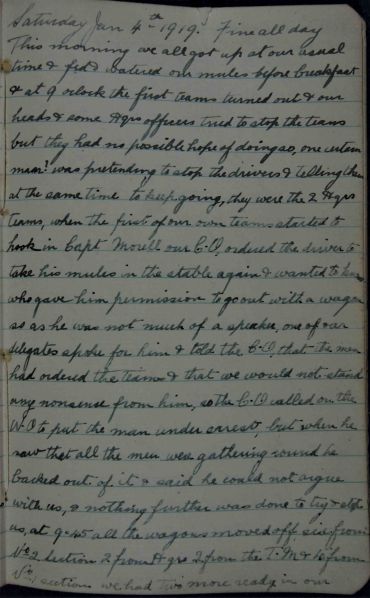 Saturday Jan 4th 1919. Fine all day
This morning we all got up at our usual
time & fed & watered our mules before breakfast
& at 9 oclock the first teams turned out & our
heads & some Hqrs officers tried to stop the teams
but they had no possible hope of doing so, one certain
man? was pretending to stop the drivers & telling them
at the same time to keep going, they were the 2 Hqrs
teams, when the first of our own teams started to
hook in Capt Morell our C.O, ordered the driver to
take his mules in the stable again & wanted to know
who gave him permission to go out with a wagon
so as he was not much of a speaker, one of our
delegates spoke for him & told the C.O, that the men
had ordered the teams & that we would not stand
any nonsense from him, so the C.O called on the
N.O to put the man under arrest, but when he
saw that all the men were gathering round he
backed out of it & said he could not argue
with us, & nothing further was done to try & stop
us, at 9-45 all the wagons moved off six from
No 2 Section 2 from Hqrs 2 from the T.M & 16 from
No 1 section we had two more ready in our